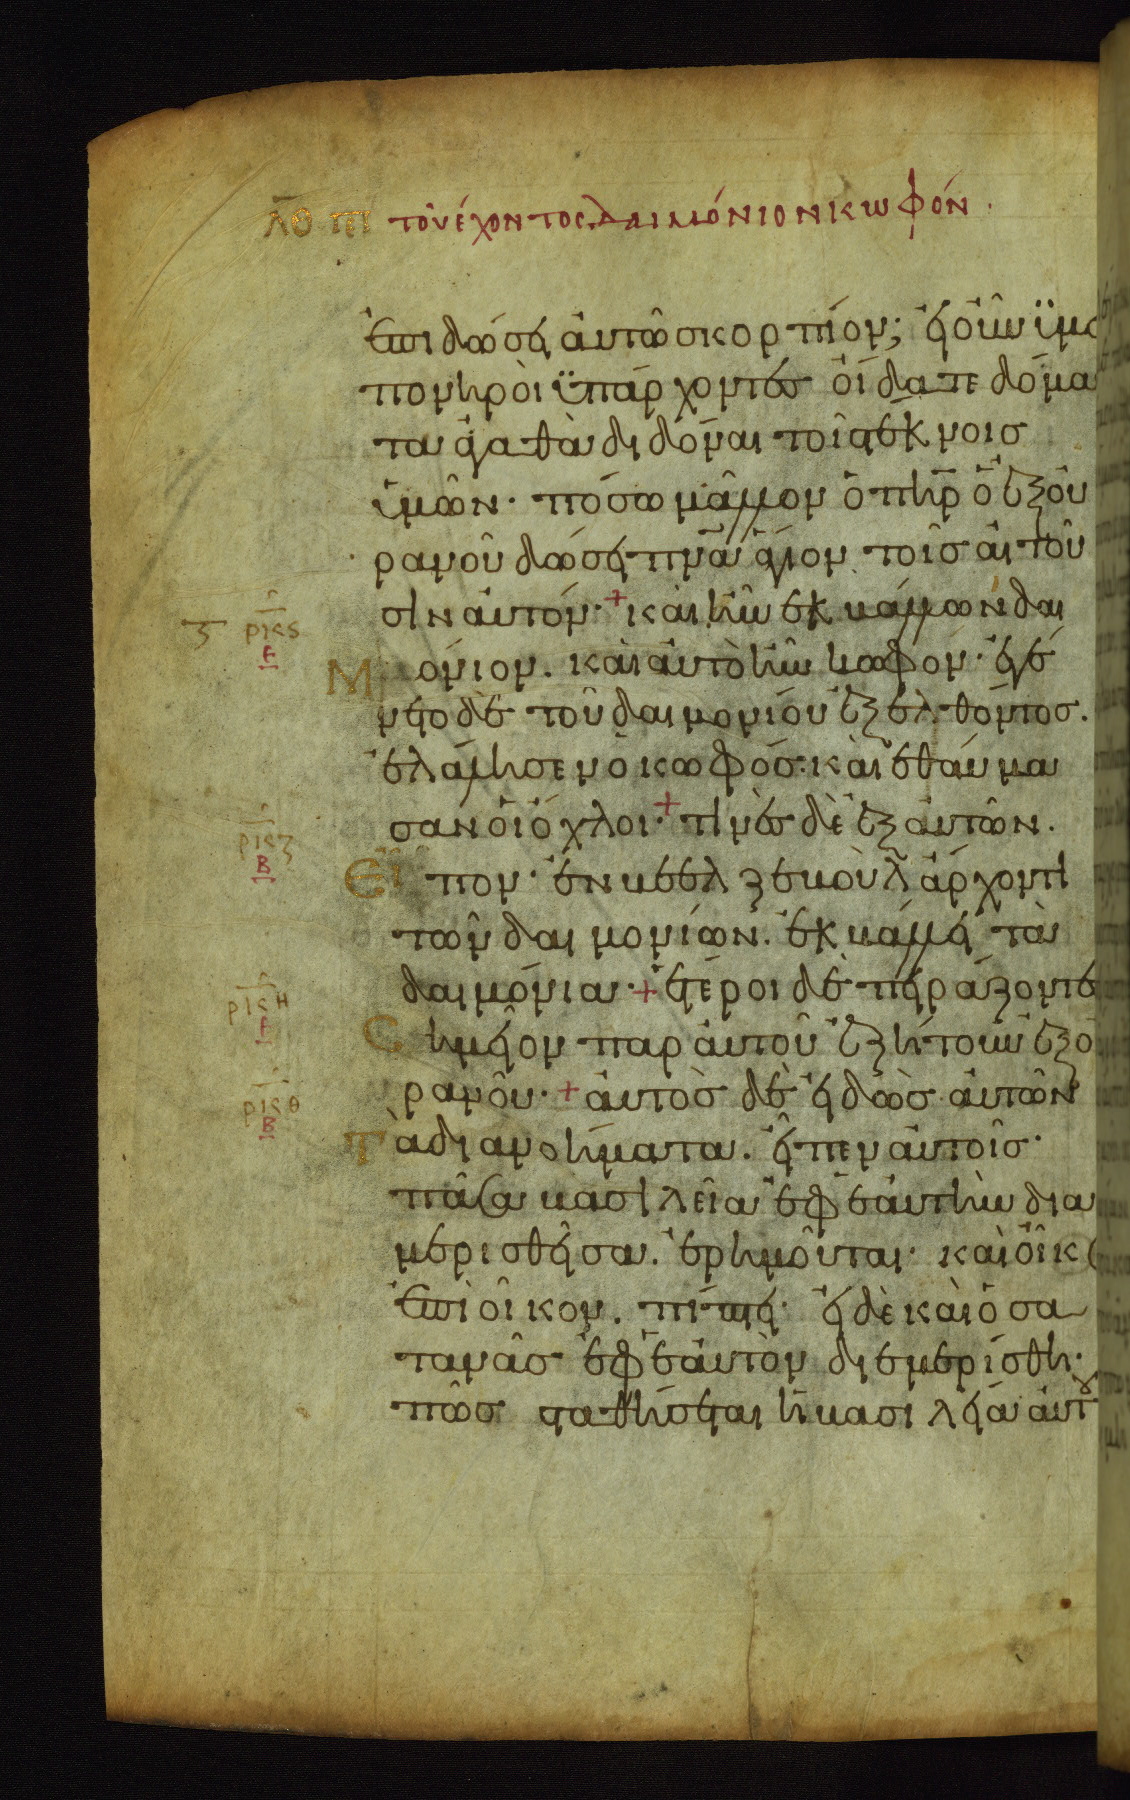 λθ πε̅ρ̅ι̅ τοῦ ἔχοντος δαιμόνιον κωφόν.
ἐπιδώσει αὐτῷ σκορπίον; εἰ οὖν ὑμε
πονηροὶ ὑπάρχοντες οἴδατε δόμα
τα ἀγαθὰ διδόναι τοῖς τέκνοις
ὑμῶν· πόσω μᾶλλον ὁ πηρ ὁ ἐξ οὐ
ρανοῦ δώσει πνα ἅγιον τοῖς αἰτοῦ
σιν αὐτόν· + καὶ ἦν ἐκβάλλων δαι
Μ όνιον. καὶ αὐτὸ ἦν κωφόν· ἐγέ
νετο δὲ τοῦ δαιμονίου ἐξελθόντος.
ἐλάλησεν ὁ κωφός· καὶ ἐθαύμα
σαν οἱ ὄχλοι· + τινὲς δὲ ἐξ αὐτῶν.
Εἶ πον· ἐν βεελζεβοὺλ ἄρχοντι
τῶν δαιμονίων. ἐκβάλλει τὰ
δαιμόνια· + ἕτεροι δὲ πειράζοντε
C ημεῖον παρ αὐτοῦ ἐζήτουν ἐξ ο
ρανοῦ· + αὐτὸς δὲ εἰδὼς αὐτῶν
Τ ὰ διανοήματα. εἶπεν αὐτοῖς·
πᾶσα βασιλεῖα ἐφ ἑαυτὴν δια
μερισθεῖσα. ἐρημοῦται· καὶ οἶκο
ἐπὶ οἶκον. πίπτει· εἰ δὲ καὶ ὁ σα
τανᾶς ἐφ ἑαυτὸν διεμερίσθη·
πῶς σταθήσεται ἡ βασιλεία αὐτοῦ
ρις
ριζ
Β
ριη
ριθ
Β